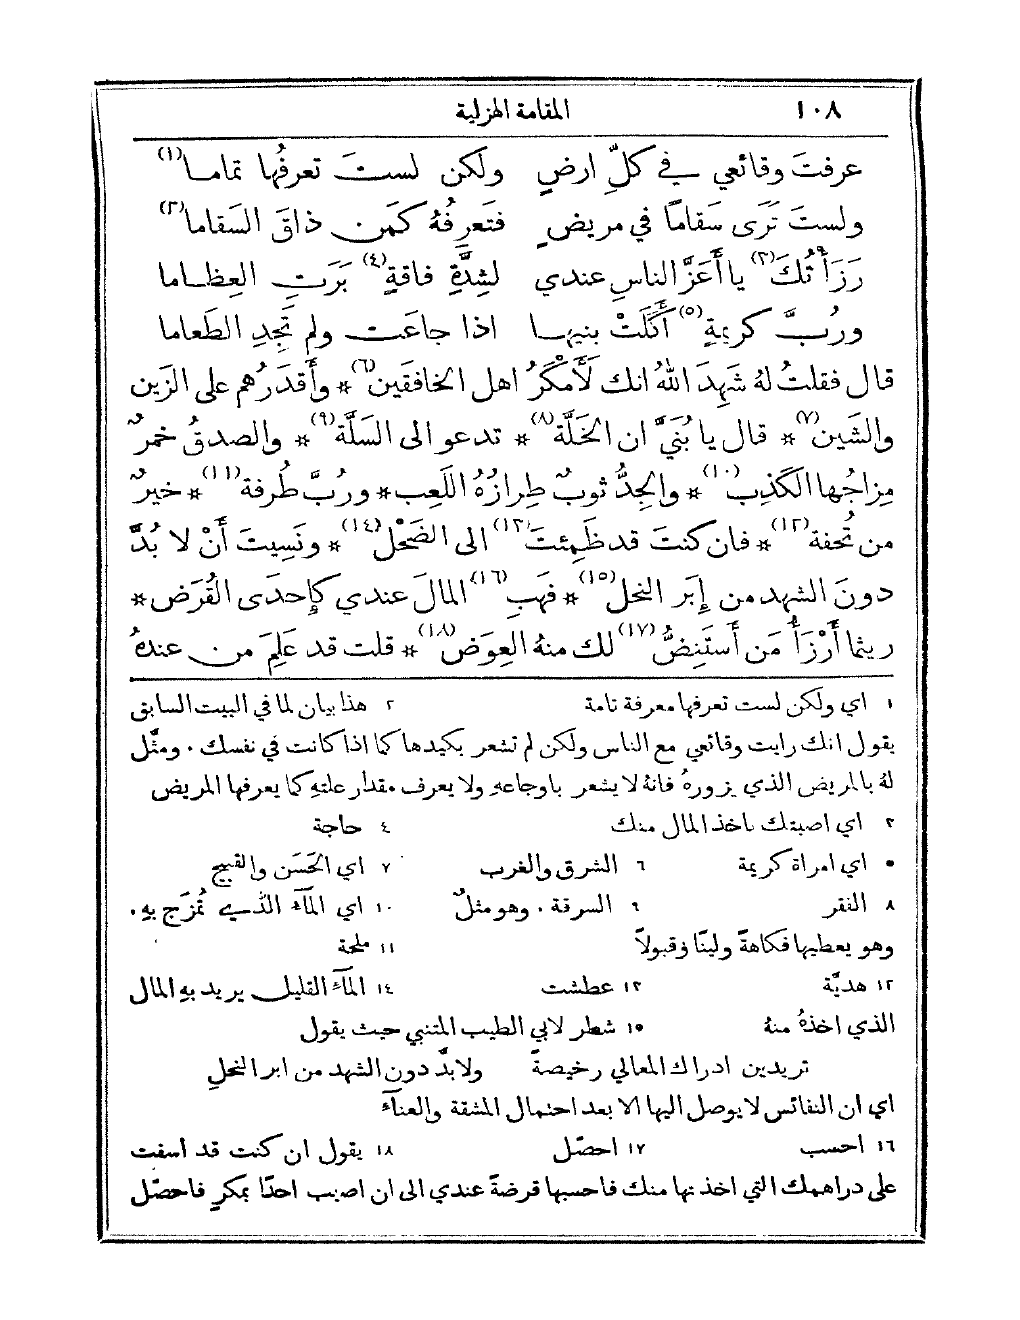 ١٠٨ المقامة الهزلية
عرفتَ وقائعي في كلِّ ارضٍ ولكن لستَ تعرفُها تماما(١)
ولستَ تَرَى سَقامًا في مريضٍ فتَعرِفُهُ كمَن ذاقَ السَقاما(٢)
رَزَأْتُكَ(٣) يا أَعَزَّ الناسِ عندي لشِدَّةِ فاقةٍ(٤) بَرَتِ العِظاما
ورُبَّ كريمةٍ(٥) أَكَلَتْ بنيها اذا جاعَت ولم تَجِدِ الطَعاما
قال فقلتُ لهُ شَهِدَ اللهُ انك لَأَمْكَرُ اهل الخافقين(٦) * وأَقدَرُهم على الزَين
والشَين(٧) * قال يا بُنَيَّ ان الخَلَّة(٨) * تدعو الى السَلَّة(٩) * والصدقُ خمرٌ
مِزاجُها الكَذِب(١٠) * والجِدُّ ثوبٌ طِرازُهُ اللَعِب * ورُبَّ طُرفة(١١) * خيرٌ
من تُحفة(١٢) * فان كنتَ قد ظَمِئتَ(١٣) الى الضَحْل(١٤) * ونَسِيتَ أَنْ لا بُدَّ
دونَ الشهد من إِبَر النحل(١٥) * فهَبِ(١٦) المالَ عندي كإِحدَى القُرَض *
ريثما أَرْزَأُ مَن أَستَنِضُّ(١٧) لك منهُ العِوَض(١٨) * قلت قد عَلِمَ مَن عندهُ
١ اي ولكن لست تعرفها معرفة تامة ٢ هذا بيان لما في البيت السابق
يقول انك رايت وقائعي مع الناس ولكن لم تشعر بكيدها كما اذا كانت في نفسك . ومثَّل
لهُ بالمريض الذي يزورهُ فانهُ لا يشعر باوجاعهِ ولا يعرف مقدار علتهِ كما يعرفها المريض
٣ اي اصبتك باخذ المال منك ٤ حاجة
٥ اي امراة كريمة ٦ الشرق والغرب ٧ اي الحَسَن والقبيح
٨ الفقر ٩ السرقة . وهو مثلٌ ١٠ اي المآء الذي تُمزَج بهِ .
وهو يعطيها فكاهةً ولينًا وقبولاً ١١ ملحة
١٢ هديَّة ١٣ عطشت ١٤ المآء القليل يريد بهِ المال
الذي اخذهُ منهُ ١٥ شطر لابي الطيب المتنبي حيث يقول
تريدين ادراك المعالي رخيصةً ولا بدَّ دون الشهد من ابر النحلِ
اي ان النفائس لا يوصل اليها الا بعد احتمال المشقة والعنآء
١٦ احسب ١٧ احصّل ١٨ يقول ان كنت قد اسفت
على دراهمك التي اخذتها منك فاحسبها قرضةً عندي الى ان اصيب احدًا بمكرٍ فاحصّل